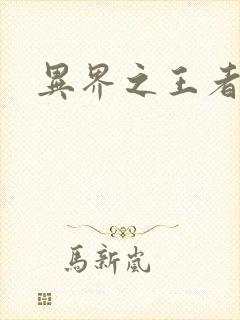 異界之王者
馬新嵐